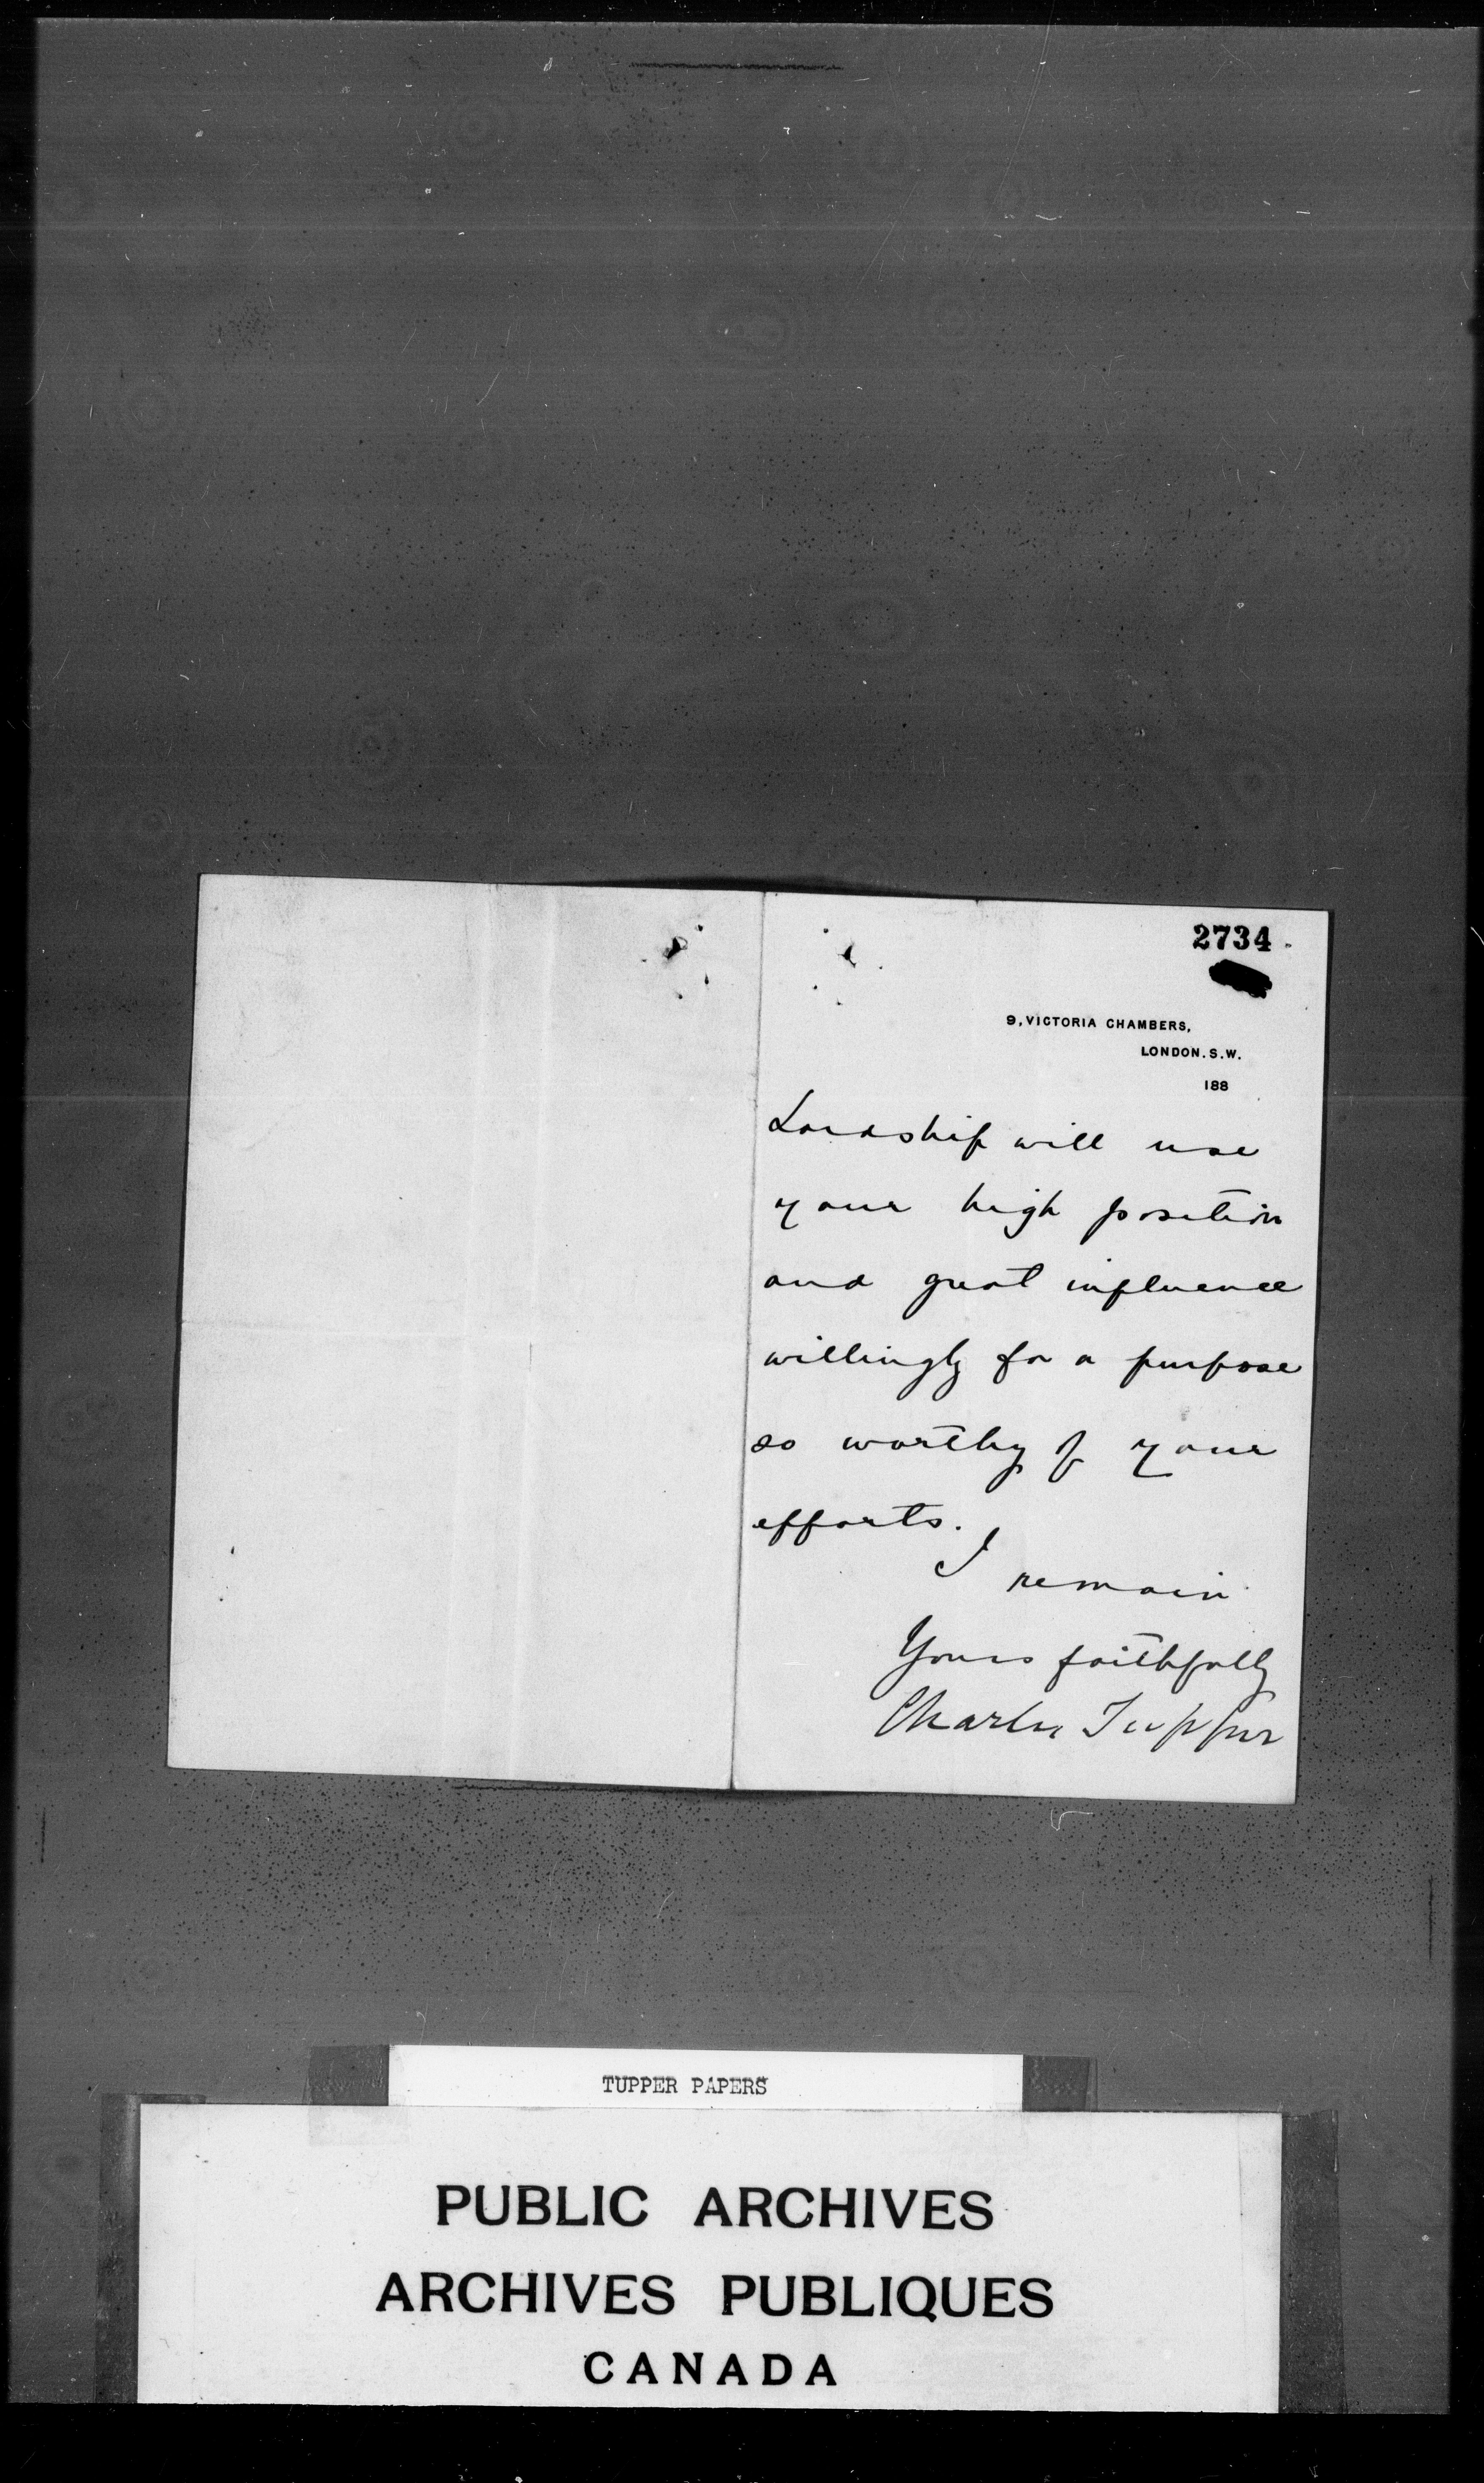 2734
9, VICTORIA CHAMBERS,
LONDON. S.W.
188
Lordship will use
your high position
and great influence
willingly for a purpose
so worthy of your
efforts.
I remain
Yours faithfully
Charles Tupper
TUPPER PAPERS
PUBLIC ARCHIVES
ARCHIVES PUBLIQUES
CANADA